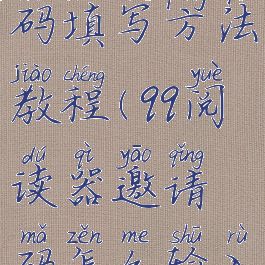 码填写方法
jiào chéng yuè
教程(99阅
dú qì yāo qǐng
读器邀请
mǎ zěn me shū rù
码怎么输入